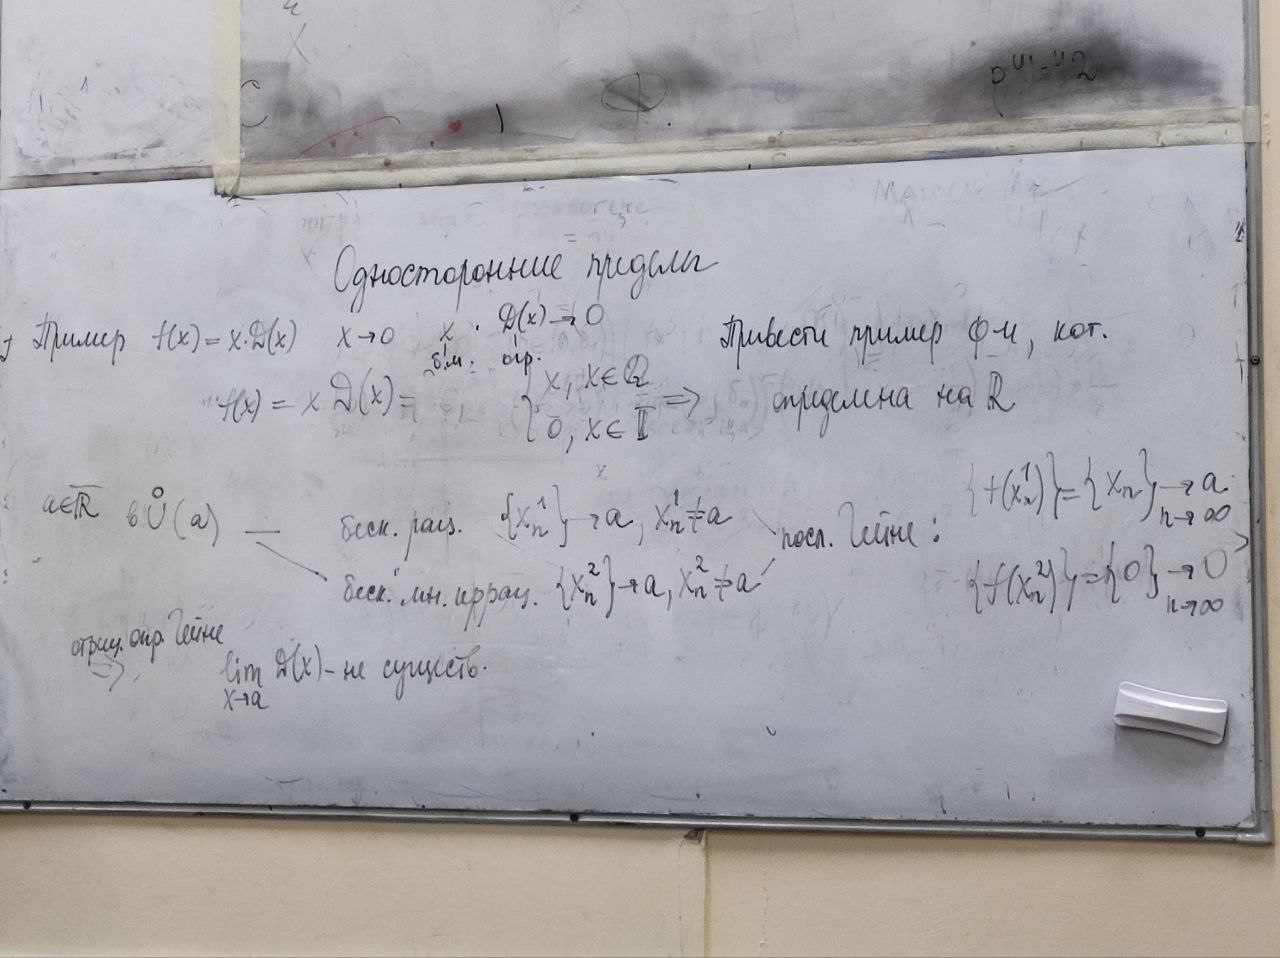 Односторонние пределы
Пример f(x) = x·D(x) x→0 x · D(x)→0
б.м. огр.
Привести пример ф-и, кот.
f(x) = x D(x) = { x, x∈ℚ
0, x∈𝕀 ⇒
определена на ℝ
a∈ℝ̅ в Ů(a) — беск. рац. {xₙ¹}→a, xₙ¹≠a
беск. мн. иррац. {xₙ²}→a, xₙ²≠a
посл. Гейне:
{f(xₙ¹)}={xₙ}→a
n→∞
{f(xₙ²)}={0}→0
n→∞
отриц. опр. Гейне
⇒ lim D(x) – не существ.
x→a